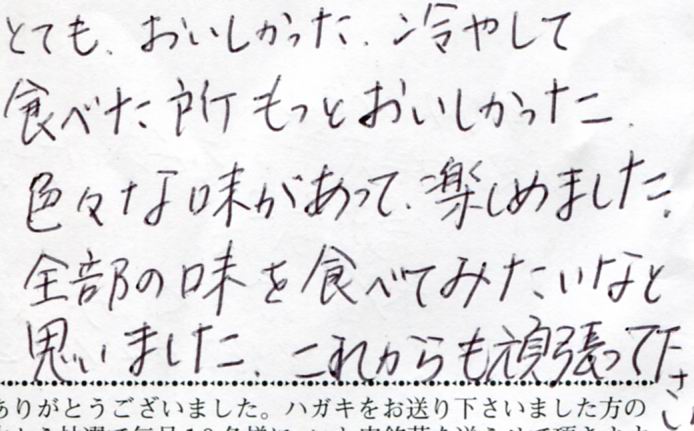 とても、おいしかった、冷やして
食べた所もっとおいしかった。
色々な味があって、楽しめました。
全部の味を食べてみたいなと
思いました、これからも頑張って下
さい
ありがとうございました。ハガキをお送り下さいました方の